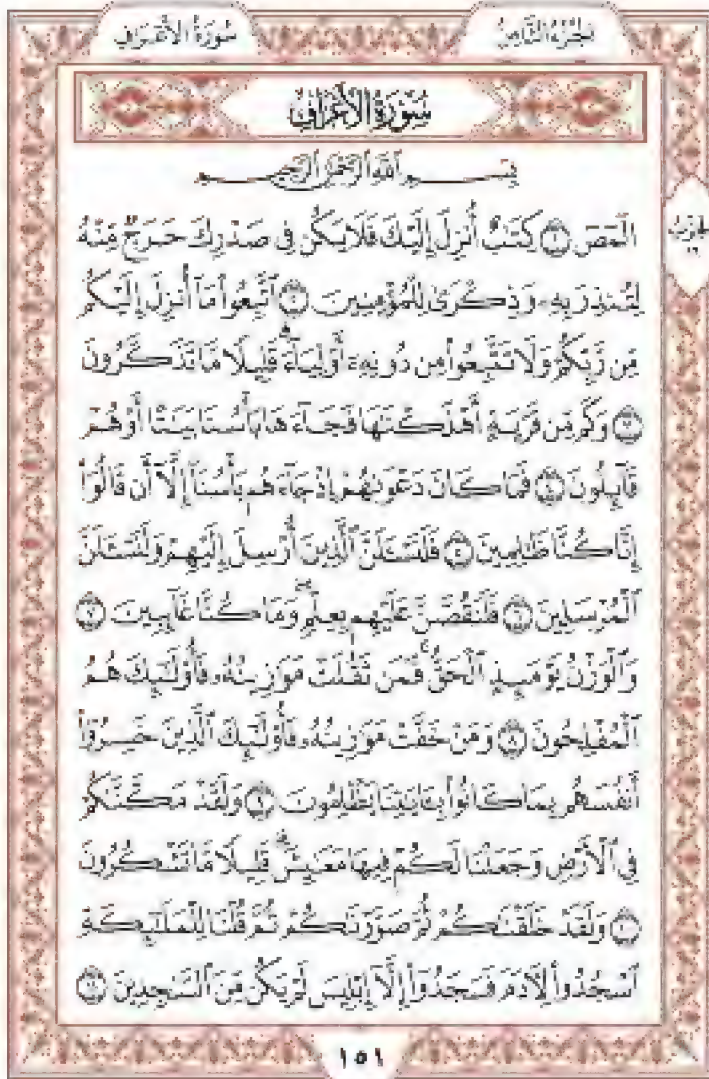 سُورَةُ الأَعْرَافِ
الجُزْءُ الثَّامِنُ
سُورَةُ الأَعْرَافِ
بِسْمِ ٱللَّهِ ٱلرَّحْمَٰنِ ٱلرَّحِيمِ
الٓمٓصٓ ١ كِتَٰبٌ أُنزِلَ إِلَيْكَ فَلَا يَكُن فِى صَدْرِكَ حَرَجٌ مِّنْهُ
لِتُنذِرَ بِهِۦ وَذِكْرَىٰ لِلْمُؤْمِنِينَ ٢ ٱتَّبِعُوا۟ مَآ أُنزِلَ إِلَيْكُم
مِّن رَّبِّكُمْ وَلَا تَتَّبِعُوا۟ مِن دُونِهِۦٓ أَوْلِيَآءَ ۗ قَلِيلًا مَّا تَذَكَّرُونَ
٣ وَكَم مِّن قَرْيَةٍ أَهْلَكْنَٰهَا فَجَآءَهَا بَأْسُنَا بَيَٰتًا أَوْ هُمْ
قَآئِلُونَ ٤ فَمَا كَانَ دَعْوَىٰهُمْ إِذْ جَآءَهُم بَأْسُنَآ إِلَّآ أَن قَالُوٓا۟
إِنَّا كُنَّا ظَٰلِمِينَ ٥ فَلَنَسْـَٔلَنَّ ٱلَّذِينَ أُرْسِلَ إِلَيْهِمْ وَلَنَسْـَٔلَنَّ
ٱلْمُرْسَلِينَ ٦ فَلَنَقُصَّنَّ عَلَيْهِم بِعِلْمٍ ۖ وَمَا كُنَّا غَآئِبِينَ ٧
وَٱلْوَزْنُ يَوْمَئِذٍ ٱلْحَقُّ ۚ فَمَن ثَقُلَتْ مَوَٰزِينُهُۥ فَأُو۟لَٰٓئِكَ هُمُ
ٱلْمُفْلِحُونَ ٨ وَمَنْ خَفَّتْ مَوَٰزِينُهُۥ فَأُو۟لَٰٓئِكَ ٱلَّذِينَ خَسِرُوٓا۟
أَنفُسَهُم بِمَا كَانُوا۟ بِـَٔايَٰتِنَا يَظْلِمُونَ ٩ وَلَقَدْ مَكَّنَّٰكُمْ
فِى ٱلْأَرْضِ وَجَعَلْنَا لَكُمْ فِيهَا مَعَٰيِشَ ۗ قَلِيلًا مَّا تَشْكُرُونَ
١٠ وَلَقَدْ خَلَقْنَٰكُمْ ثُمَّ صَوَّرْنَٰكُمْ ثُمَّ قُلْنَا لِلْمَلَٰٓئِكَةِ
ٱسْجُدُوا۟ لِـَٔادَمَ فَسَجَدُوٓا۟ إِلَّآ إِبْلِيسَ لَمْ يَكُن مِّنَ ٱلسَّٰجِدِينَ ١١
١٥١